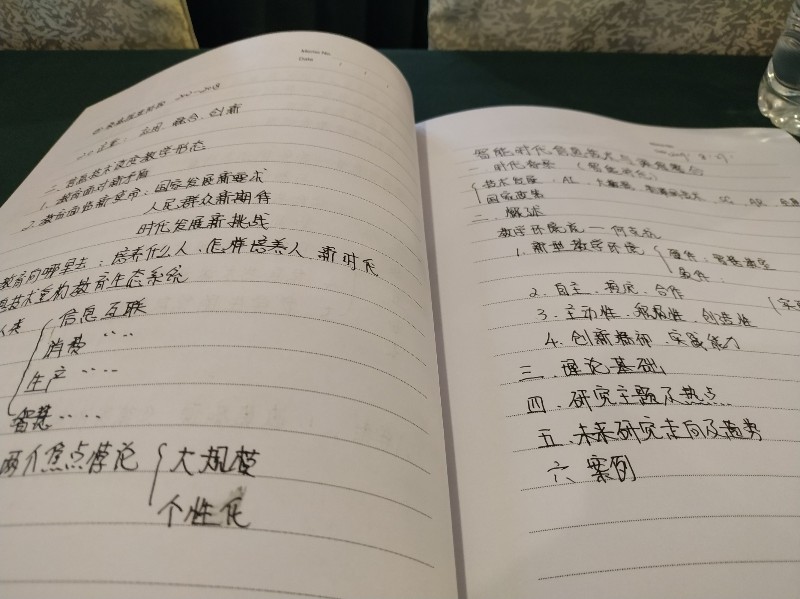 Memo No.
Date / /
应用、融合、创新
二、信息技术改变教学形态
1. 教育面对新矛盾
2. 教育面临新使命：国家发展新要求
人民群众新期待
时代发展新挑战
教育向哪里去：培养什么人、怎样培养人 新时代
技术重构教育生态系统
人类
信息互联
消费 ‥‥
生产 ‥‥
智慧 ‥‥
两个焦点悖论 大规模
个性化
智能时代信息技术与课程整合
一 时代背景 (智能时代)
技术发展：AI、大数据、5G、
国家政策
二、概述
教学环境观 —
1. 新型教学环境 硬件：智慧教室
软件：
2. 自主、探究、合作
3. 主动性、积极性、创造性
4. 创新精神、实践能力
三、理论基础
四、研究主题及热点
五、未来研究走向及趋势
六、案例